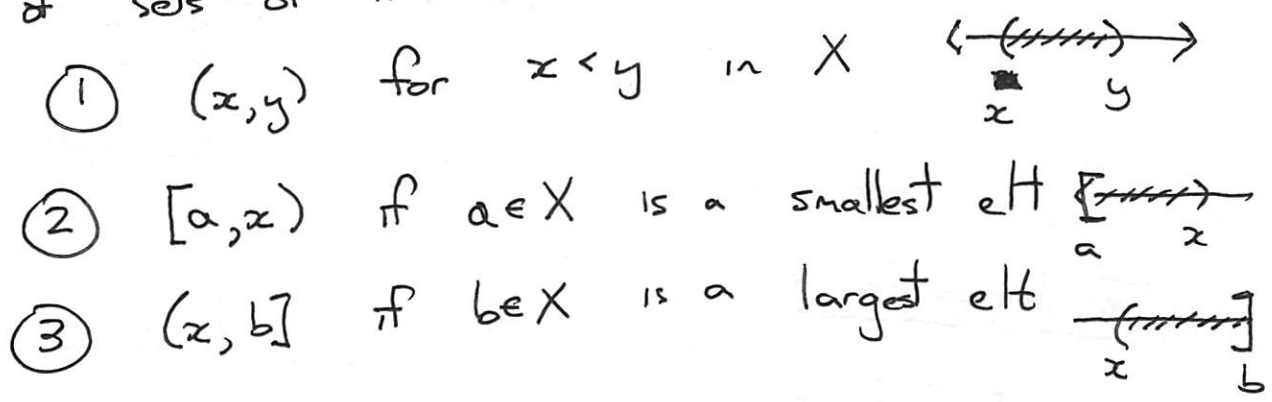 ① (x,y) for x < y in X x y
② [a,x) if a ∈ X is a smallest elt a x
③ (x,b] if b ∈ X is a largest elt x b